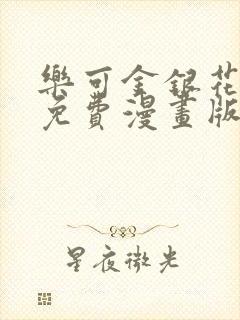 樂可金銀花
免費漫畫版
星夜微光